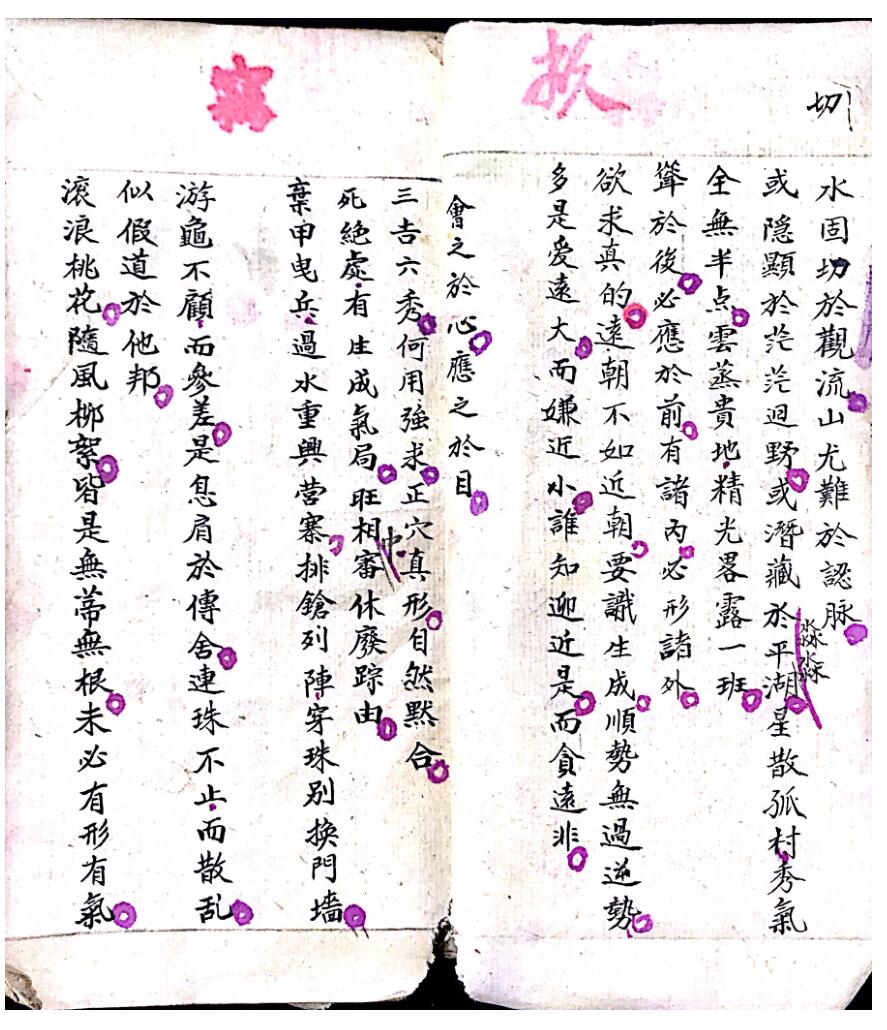 切
水固切於觀流山尤難於認脉
或隱顯於茫茫迴野或潛藏於平湖星散孤村秀氣
淼淼
全無半点雲蒸貴地精光畧露一班
聳於後必應於前有諸內必形諸外
欲求真的遠朝不如近朝要識生成順勢無過逆勢
多是愛遠大而嫌近小誰知迎近是而貪遠非
會之於心應之於目
三吉六秀何用強求正穴真形自然黙合
死絕處有生成氣局旺相審休廢踪由
中
棄甲曳兵過水重興营寨排鎗列陣穿珠別換門墻
游龜不顧而參差是息肩於傳舍連珠不止而散乱
似假道於他邦
滚浪桃花隨風柳絮皆是無蒂無根未必有形有氣